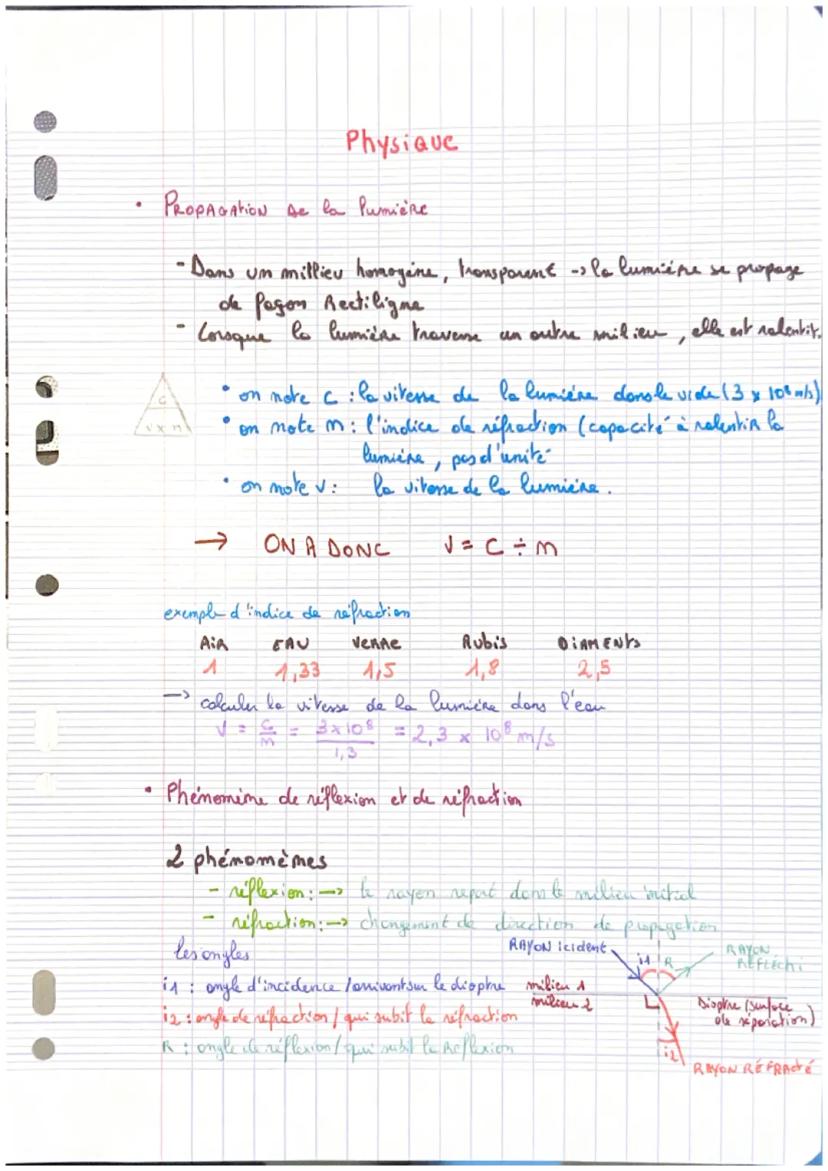 Physique
• PROPAGATION De la lumière
- Dans un millieu homogène, transparent -> la lumière se propage
de façon Rectiligne
- Lorsque la lumière traverse un autre milieu, elle est ralentit.
• on note c : la vitesse de la lumière dans le vide (3 x 10⁸ m/s)
• on note n : l'indice de réfraction (capacité à ralentir la
lumière, pas d'unité
• on note v : la vitesse de la lumière.
C
V x n
→ ON A DONC V = C ÷ n
exemple d'indice de réfraction
AIR EAU VERRE Rubis DIAMENTS
1 1,33 1,5 1,8 2,5
-> calculer la vitesse de la lumière dans l'eau
V = C/n = 3x10⁸/1,3 = 2,3 x 10⁸ m/s
• Phénomème de réflexion et de réfraction
2 phénomèmes
- réflexion : -> le rayon repart dans le milieu initial
- réfraction : -> changement de direction de propagation
les angles
i1 : angle d'incidence / arrivant sur le dioptre
i2 : angle de réfraction / qui subit la réfraction
R : angle de réflexion / qui subit la Réflexion
RAYON icident
i1 R
RAYON
RÉFLÉCHI
milieu 1
milieu 2
Dioptre (surface
de séparation)
i2
RAYON RÉFRACTÉ